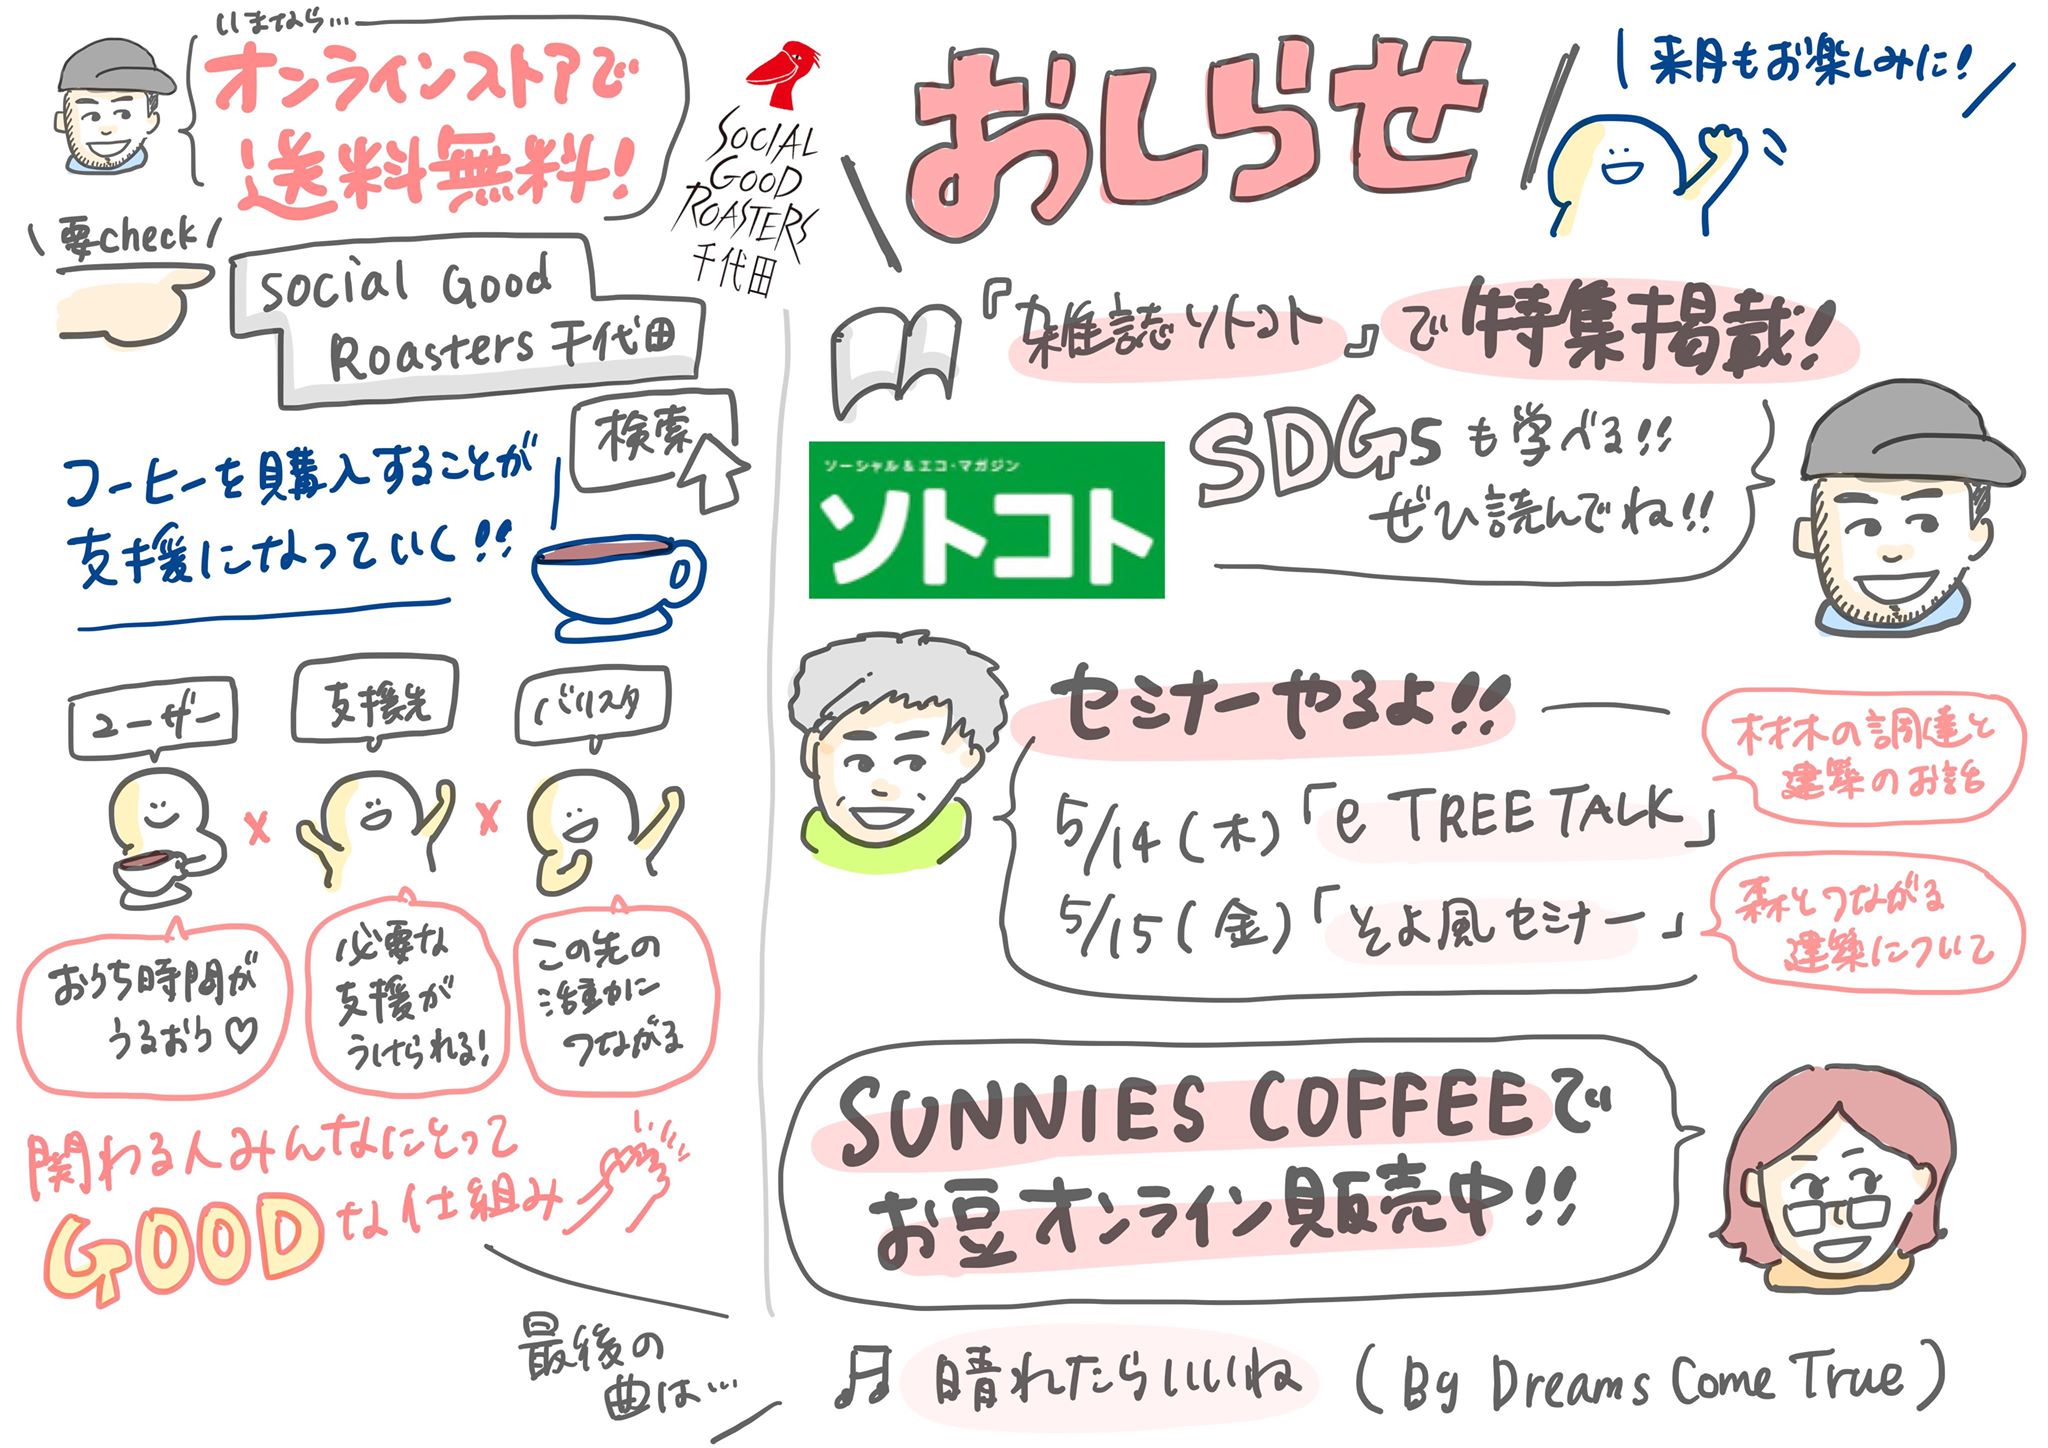 いまなら…
オンラインストアで
送料無料!
要check
Social Good
Roasters 千代田
検索
SOCIAL
GOOD
ROASTERS
千代田
コーヒーを購入することが
支援になっていく!!
ユーザー
支援先
バリスタ
x
x
おうち時間が
うるおう♡
必要な
支援が
うけられる!
この先の
活動に
つながる
関わる人みんなにとって
GOODな仕組み
おしらせ
来月もお楽しみに!
『雑誌ソトコト』で特集掲載!
ソーシャル&エコ・マガジン
ソトコト
SDGsも学べる!!
ぜひ読んでね!!
セミナーやるよ!!
5/14(木)「e TREE TALK」
材木の調達と
建築のお話
5/15(金)「そよ風セミナー」
森とつながる
建築について
SUNNIES COFFEEで
お豆オンライン販売中!!
最後の
曲は…
♫ 晴れたらいいね (By Dreams Come True)